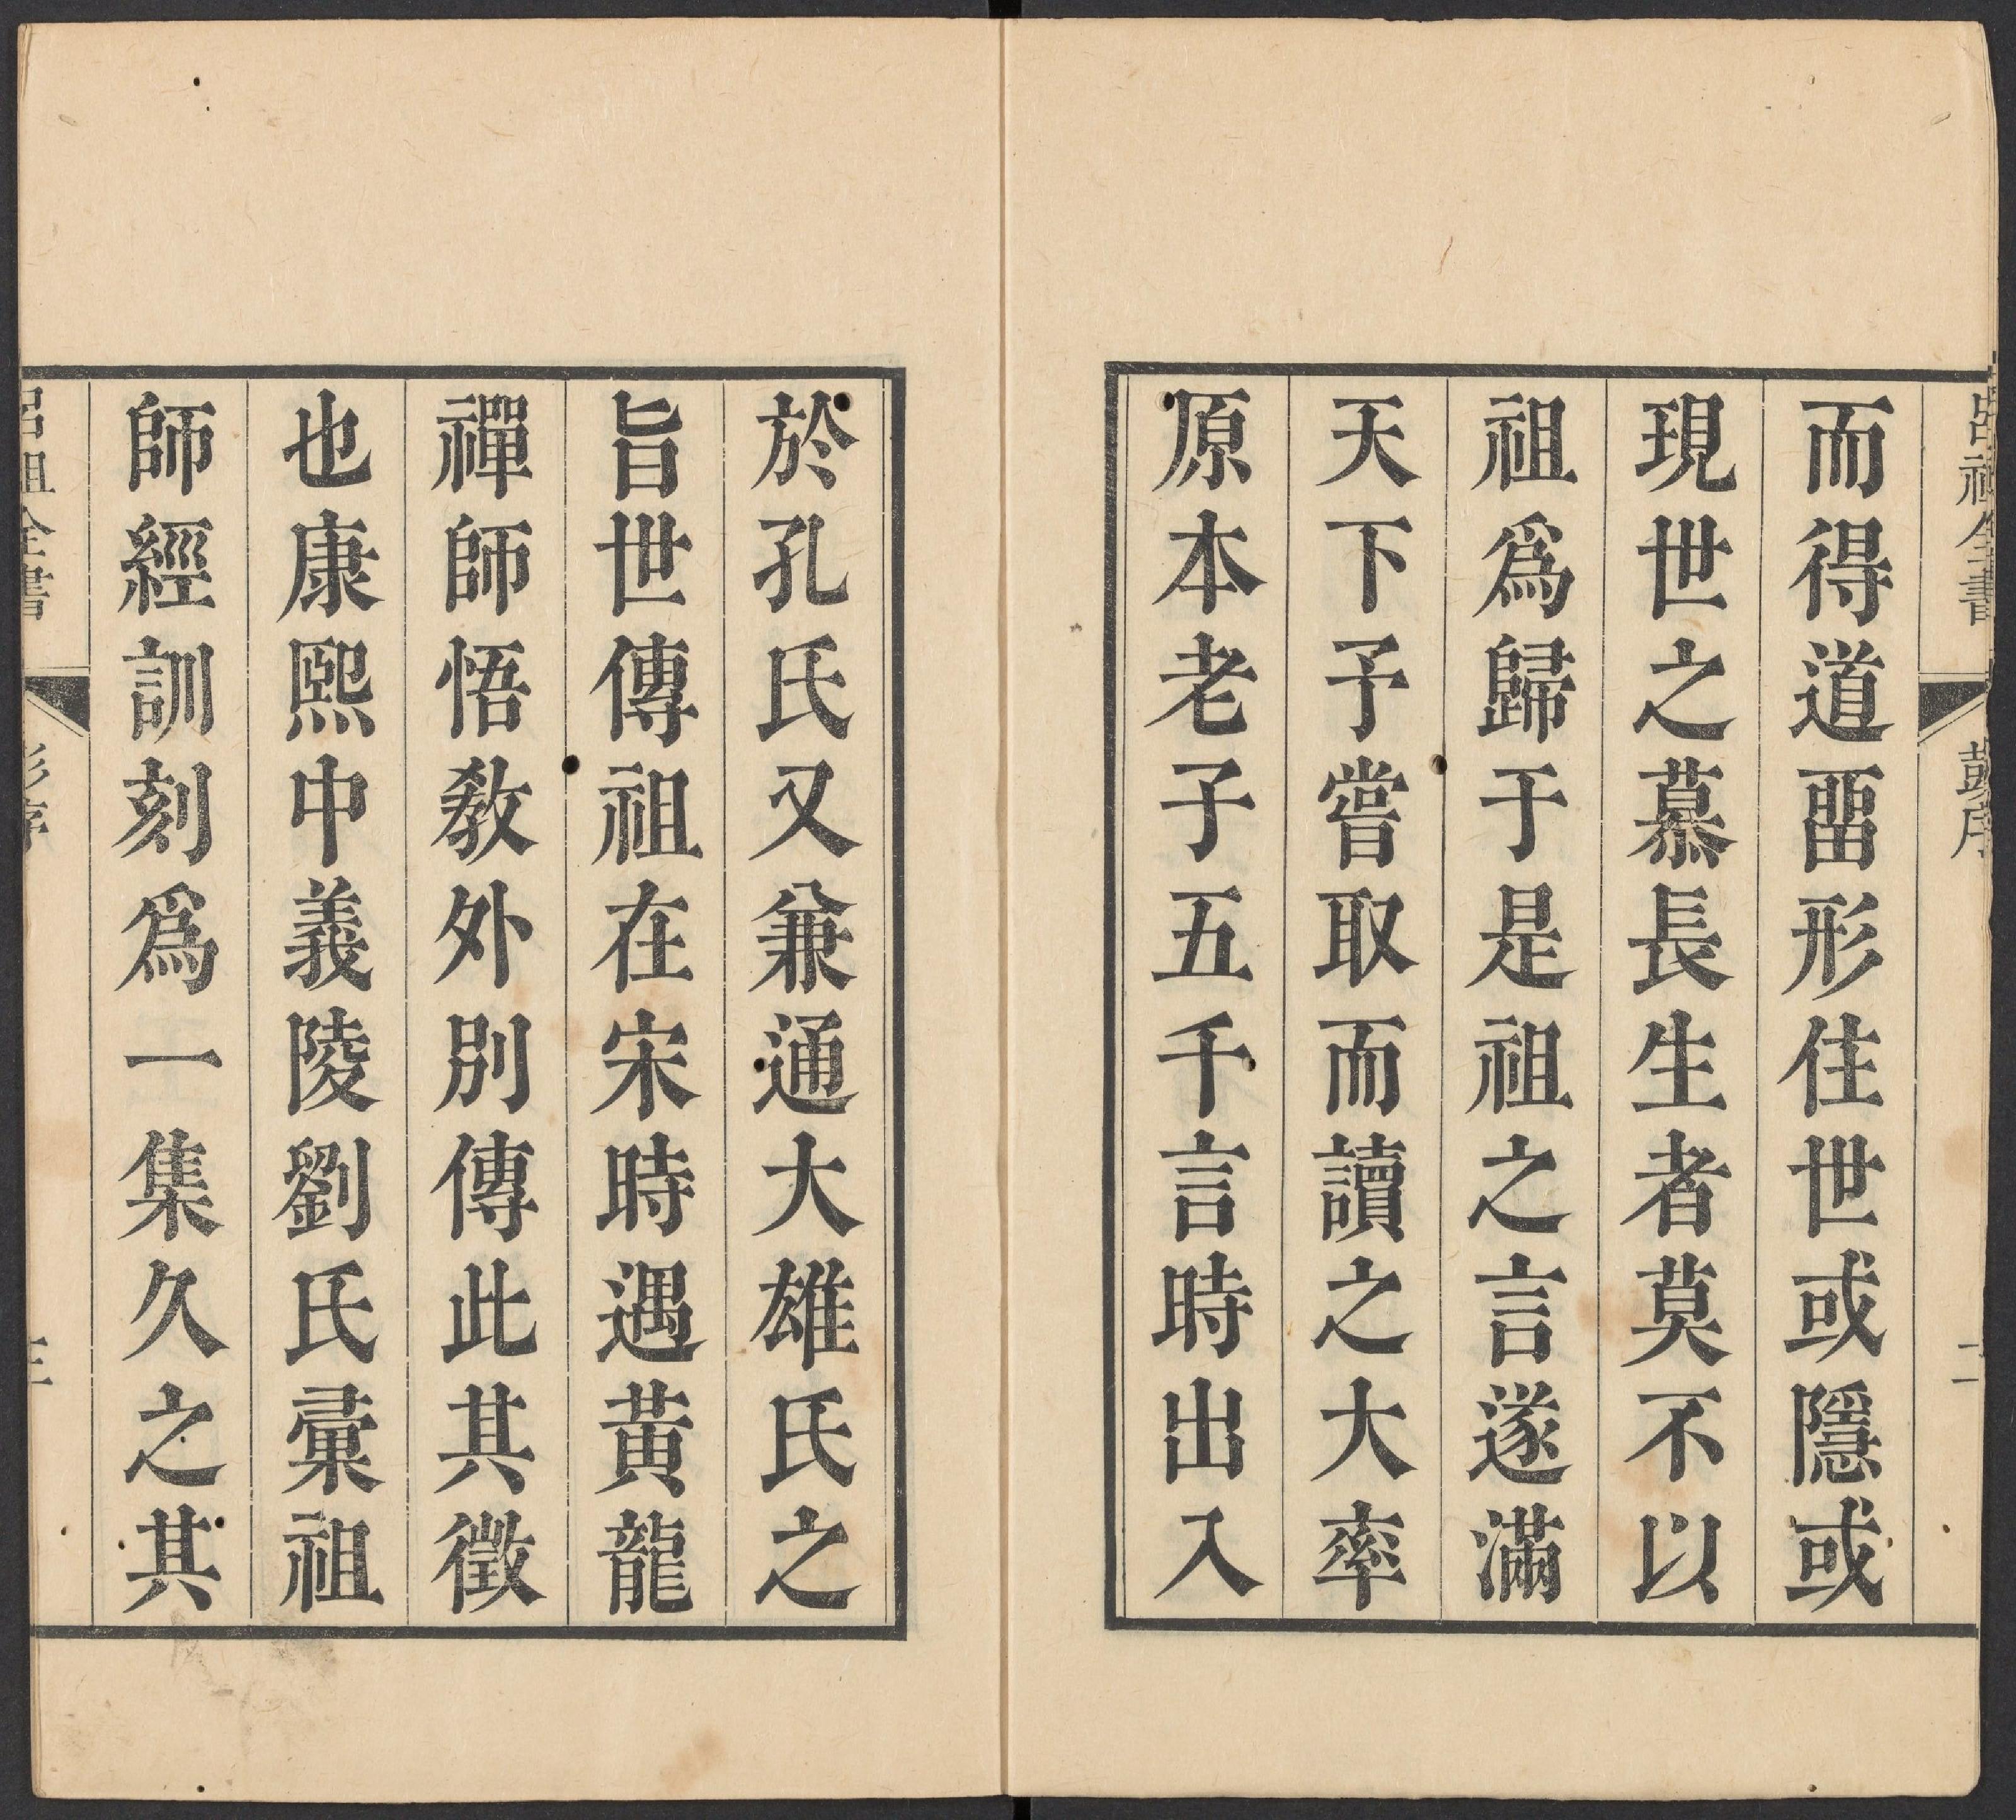 呂祖全書
序
二
而得道畱形住世或隱或
現世之慕長生者莫不以
祖爲歸于是祖之言遂滿
天下予嘗取而讀之大率
原本老子五千言時出入
於孔氏又兼通大雄氏之
旨世傳祖在宋時遇黃龍
禪師悟敎外別傳此其徵
也康熙中義陵劉氏彙祖
師經訓刻爲一集久之其
呂祖全書
彭序
三